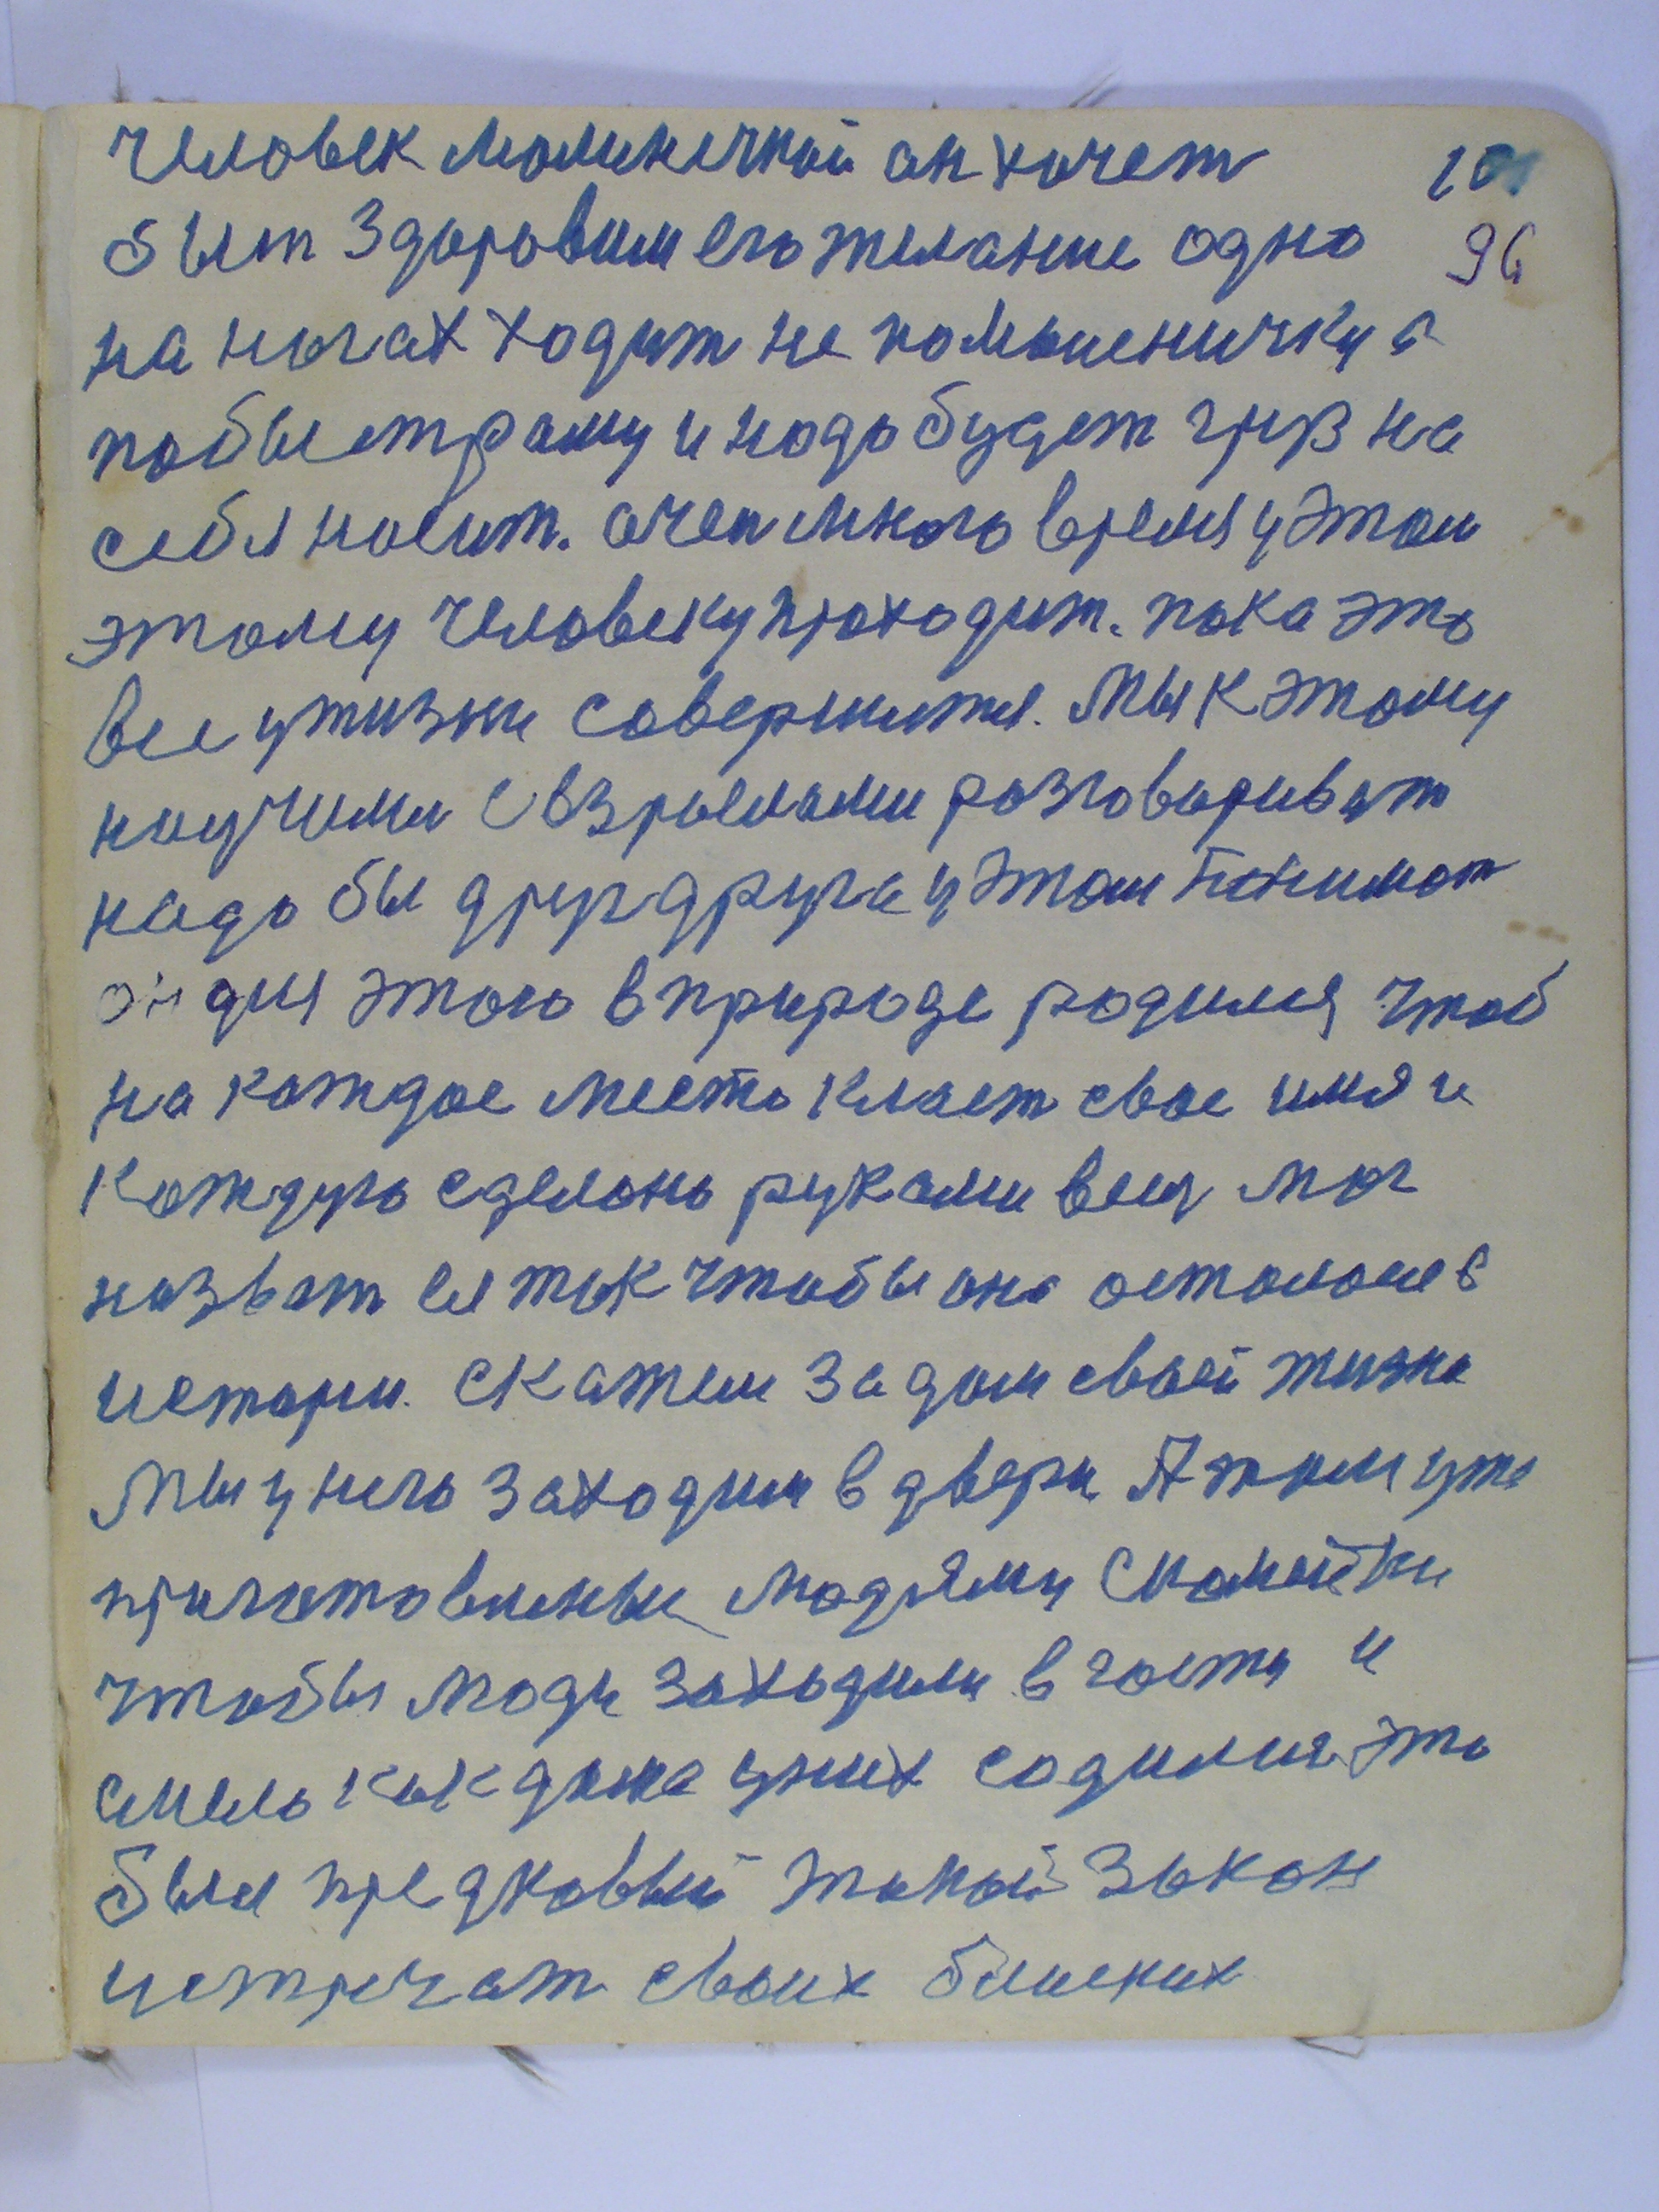 человек молинечкой он хочет
быт здоровим его желание одно
на ногах ходит не помаленичку а
побыстрому и надо будет груз на
себя носит. очен много время у этом
этому человеку проходит. пока это
все у жизни совершится. Мы к этому
научили с взрослами разговариват
надо бы друг друга у этом понимат
он для этого в природе родился чтоб
на каждое место класт свое имя и
каждую сделоно руками вещ мог
назват ея так чтобы она осталася в
истори. скажем за дом своей жизни
мы у него заходим в двери. А там уже
приготовлены людями скамейки
чтобы люди заходили в гости и
смело как дома у них содилися это
была предковый такой закон
истречат своих блиских
101
96